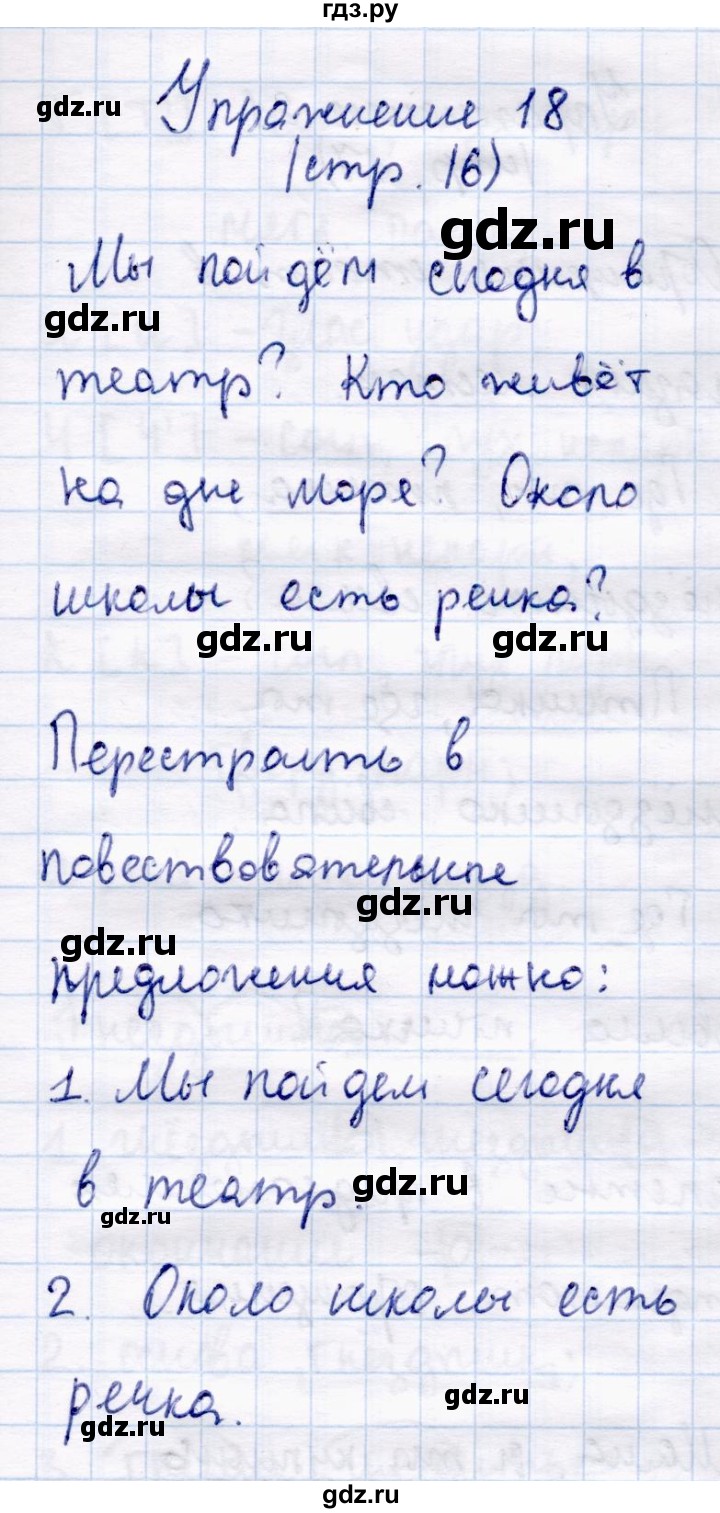 гдз.ру
Упражнение 18
gdz.ru
(стр. 16)
gdz.ru
Мы пойдём сегодня в
gdz.ru
театр? Кто живёт
на дне моря? Около
школы есть речка?
gdz.ru gdz.ru
Перестроить в
повествовательные
gdz.ru
gdz.ru
предложения можно:
1. Мы пойдем сегодня
в театр.
gdz.ru
gdz.ru
2. Около школы есть
речка.
gdz.ru
gdz.ru
gdz.ru